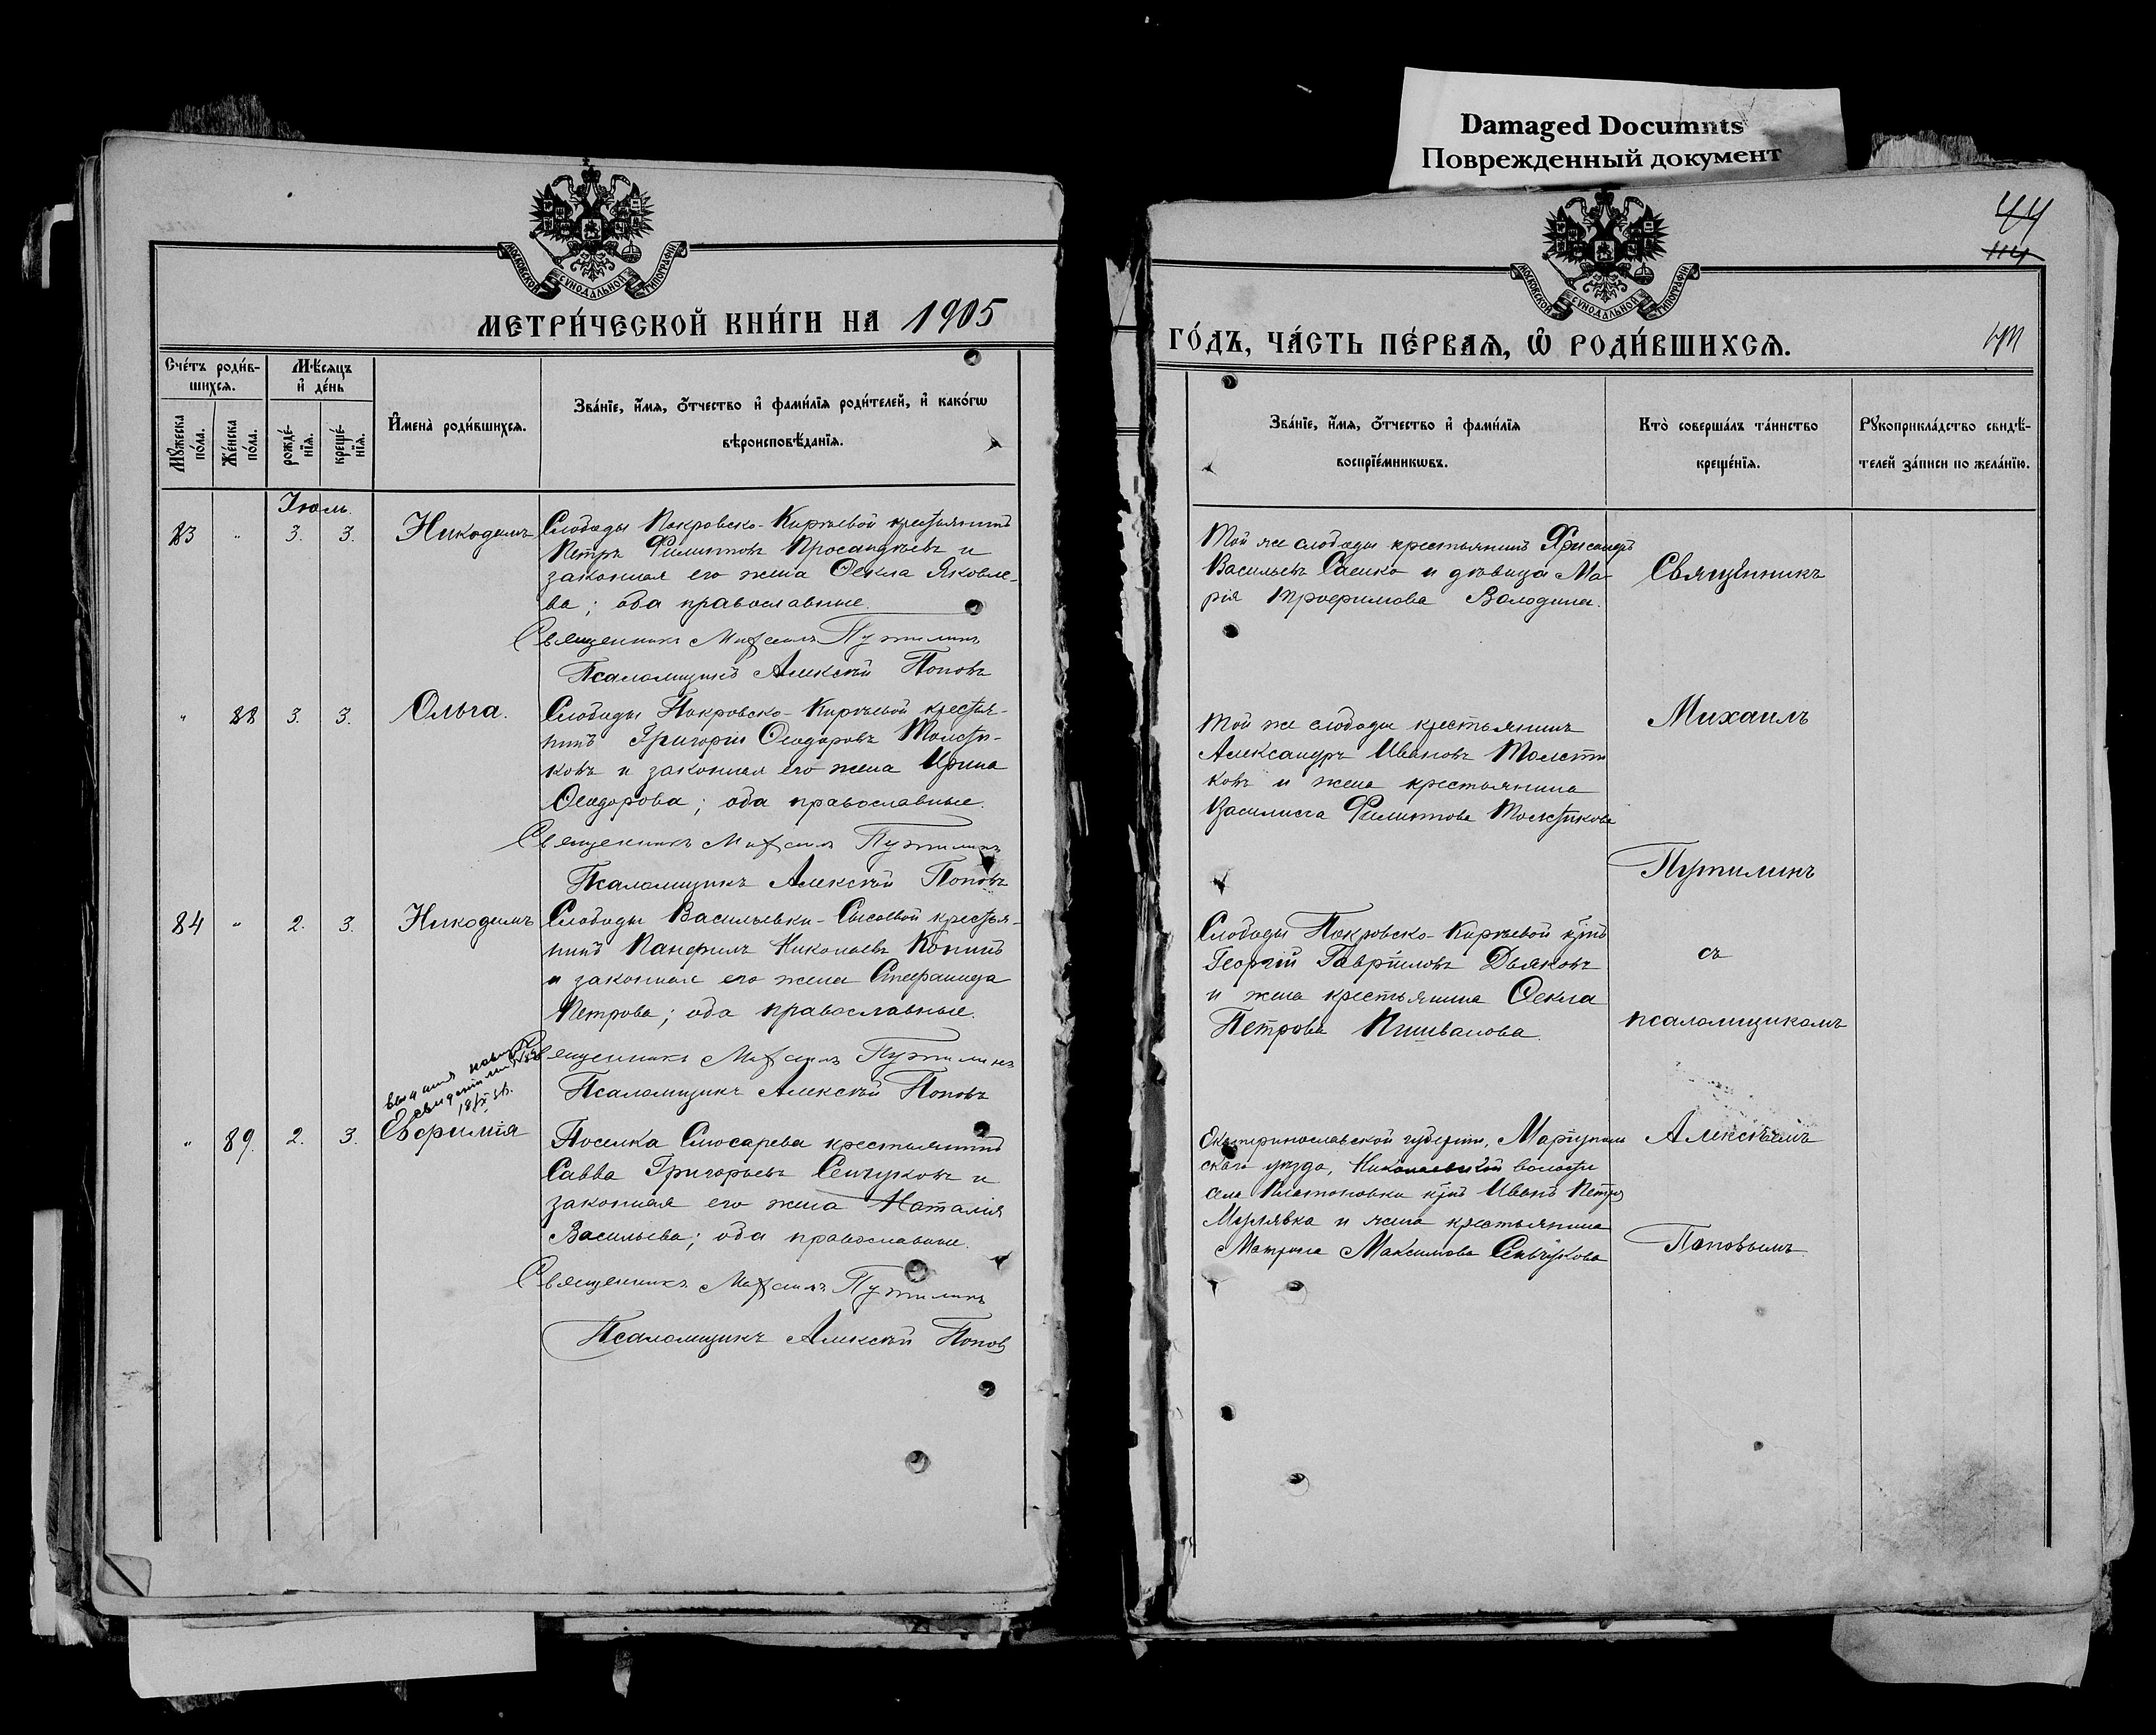 Damaged Documnts
Поврежденный документ
44
114
МОСКОВСКОЙ СѴНОДАЛЬНОЙ ТИПОГРАФІИ
МОСКОВСКОЙ СѴНОДАЛЬНОЙ ТИПОГРАФІИ
МЕТРИ́ЧЕСКОЙ КНИ́ГИ НА 1905
ГО́ДЪ, ЧА́СТЬ ПЕ́РВАѦ, Ѡ҆ РОДИ́ВШИХСѦ.
Сче́тъ роди́в-
шихсѧ.
Мѣ́сѧцъ
и҆ де́нь
Мꙋ́жеска по́ла.
Же́нска по́ла.
рожде́-
нїѧ.
креще́-
нїѧ.
И҆мена̀ роди́вшихсѧ.
Зва́нїе, и҆́мѧ, ѻ҆́тчество и҆ фами́лїѧ роди́телей, и҆ како́гѡ
вѣроисповѣ́данїѧ.
Зва́нїе, и҆́мѧ, ѻ҆́тчество и҆ фами́лїѧ
воспрїе́мникѡвъ.
Кто̀ соверша́лъ та́инство
креще́нїѧ.
Рꙋкоприкла́дство свидѣ́-
телей за́писи по жела́нїю.
Іюль.
83 " 3. 3. Никодимъ
Слободы Покровско-Киреевой крестьянинъ
Петръ Филиповъ Просандѣевъ и
законная его жена Ѳекла Яковле-
ва; оба православные.
Священникъ Михаилъ Путилинъ
Псаломщикъ Алексѣй Поповъ
Той же слободы крестьянинъ Хрисанфъ
Васильевъ Саенко и дѣвица Ма-
рія Трофимова Володина.
" 88 3. 3. Ольга.
Слободы Покровско-Киреевой крестья-
нинъ Григорій Ѳеодоровъ Толсти-
ковъ и законная его жена Ирина
Ѳеодорова; оба православные.
Священникъ Михаилъ Путилинъ
Псаломщикъ Алексѣй Поповъ
Той же слободы крестьянинъ
Александръ Ивановъ Толсти
ковъ и жена крестьянина
Василиса Филиппова Толстикова
84 " 2. 3. Никодимъ
Слободы Васильевки-Сысоевой крестья-
нинъ Панфилъ Николаевъ Копинъ
и законная его жена Стефанида
Петрова; оба православные.
Священникъ Михаилъ Путилинъ
Псаломщикъ Алексѣй Поповъ
Слободы Покровско-Киреевой кр̃нъ
Георгій Гавріиловъ Дьяковъ
и жена крестьянина Ѳекла
Петрова
" 89. 2. 3. Евфимія
Поселка Слюсарева крестьянинъ
Савва Григорьевъ Сенчуковъ и
законная его жена Наталія
Васильева; оба православные.
Священникъ Михаилъ Путилинъ
Псаломщикъ Алексѣй Поповъ
Екатеринославской губерніи, Маріуполь
скаго уѣзда, Николаевской волости
села Платоновки кр̃нъ Иванъ Петр
и жена крестьянина
Матрона Максимова Сенчукова
Священникъ
Михаилъ
Путилинъ
съ
псаломщикомъ
Алексѣемъ
Поповымъ.